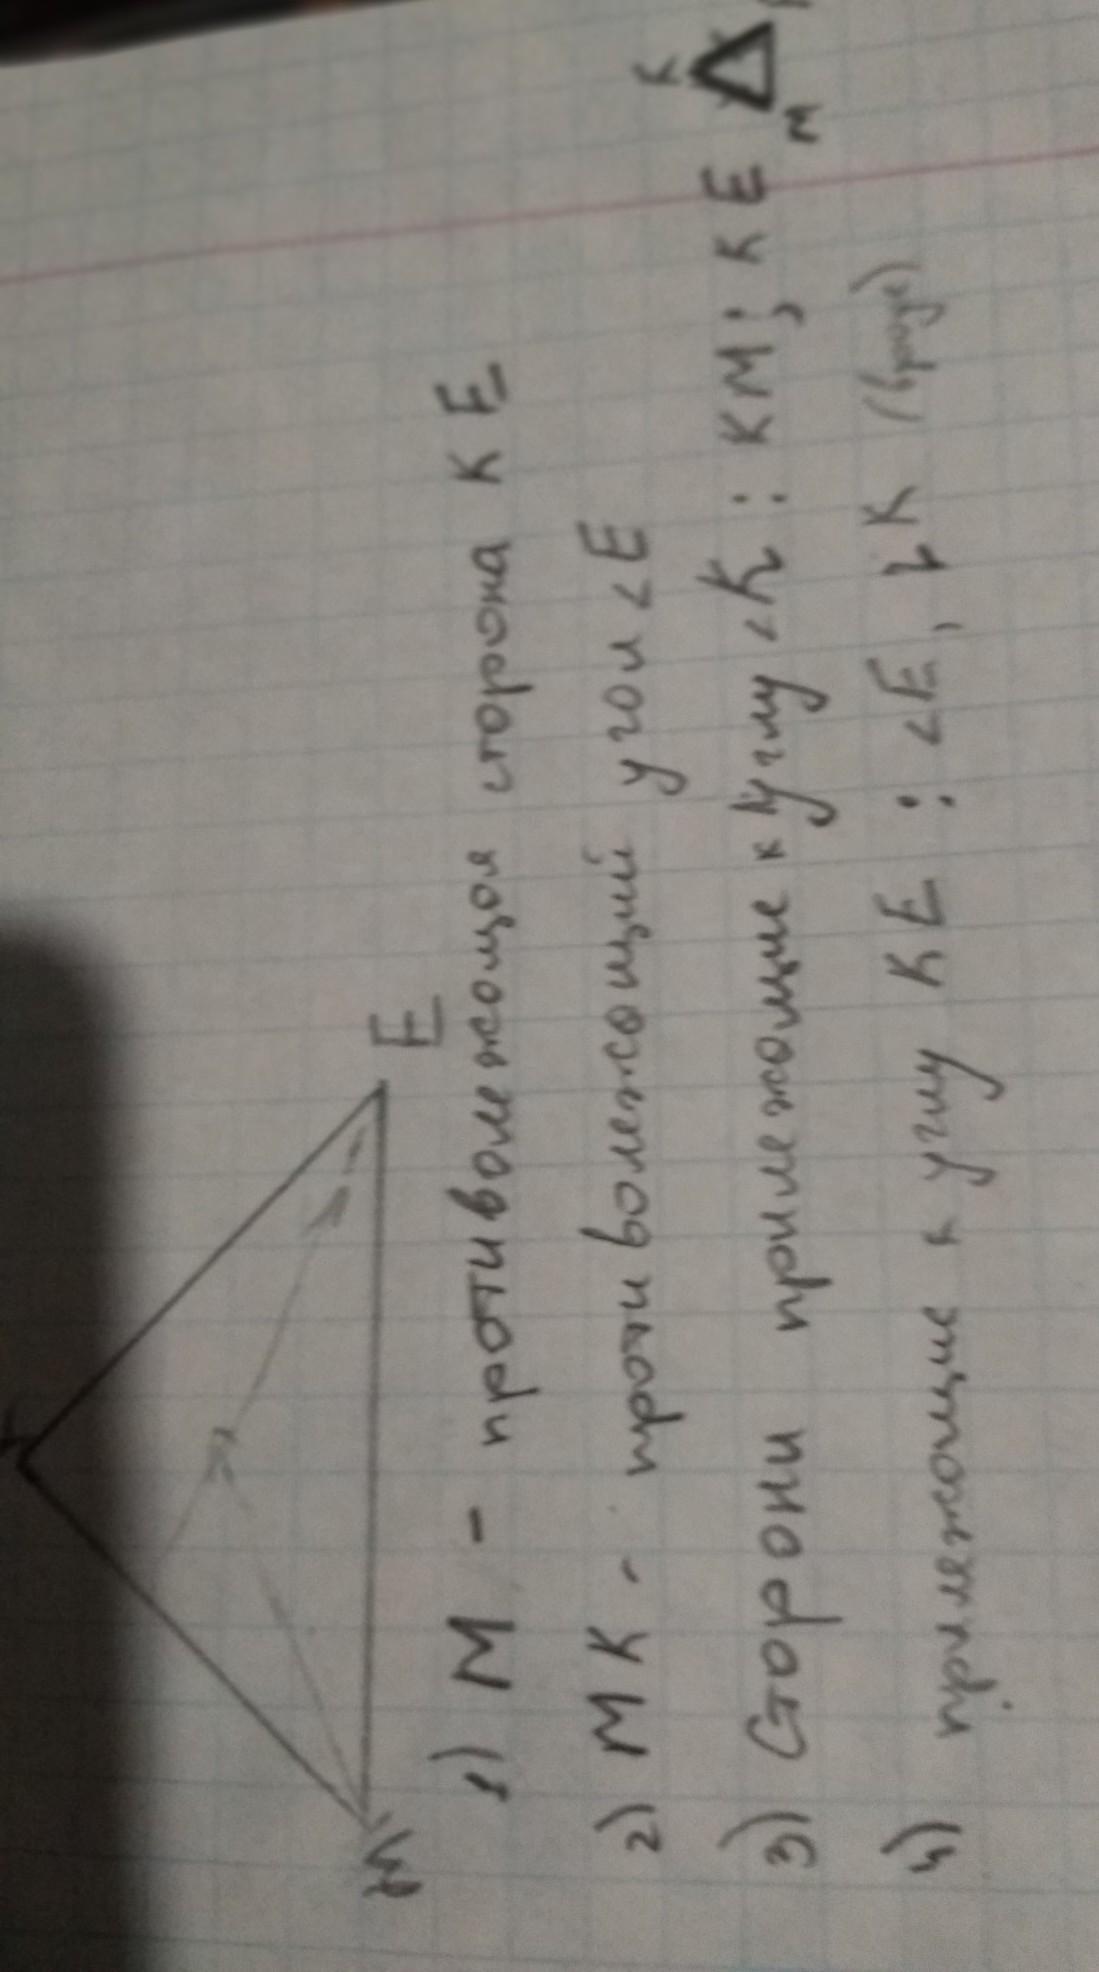 M
E
1) M - противолежащая сторона KE
2) MK - противолежащий угол ∠E
3) Стороны прилежащие к углу ∠K : KM; KE
K
M
4) прилежащие к углу KE : ∠E, ∠K